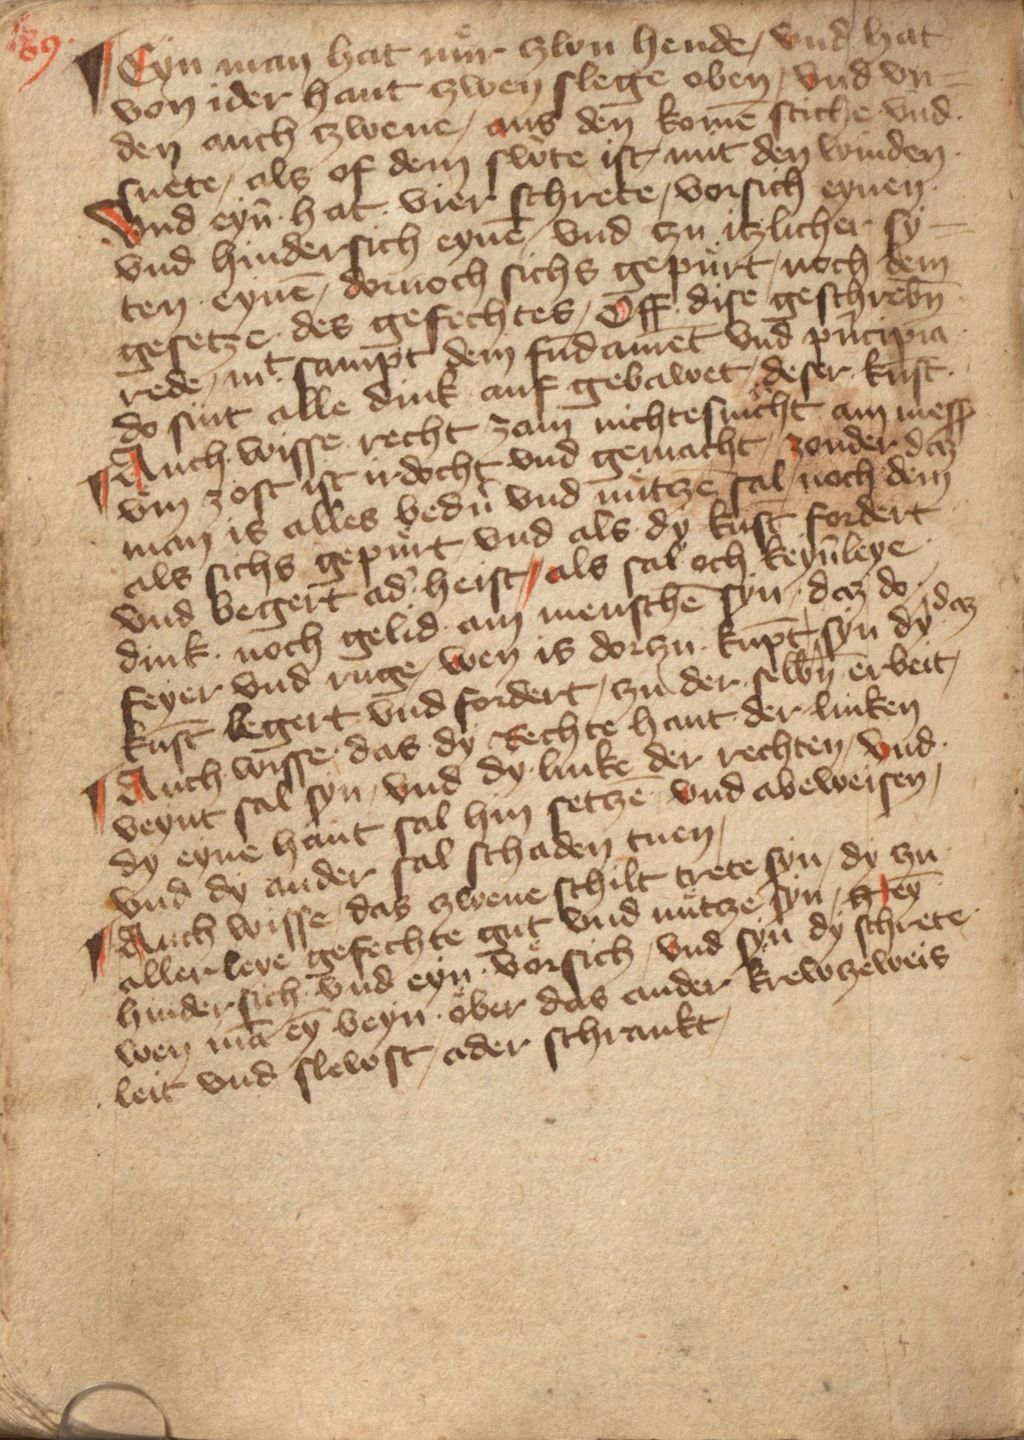 89.
Eyn man hat nuͤr czwu hende / vnd hat
von ider hant czwen slege oben / vnd vn=
den auch czwene / aus den komē stiche vnd
snete / als of dem slōte ist / mit den winden
Vnd eyn̄ hat vier schrete / vorsich eynen
vnd hindersich eynē / vnd zu itzlicher sy=
ten eynē / dornoch sichs gepuͤrt / noch dem
gesetze des gefechtes / Off dise geschrebn̄
rede / mit sampt dem fūdamēt vnd pn̄cipia
do sint alle dink auf gebawet / deser kūst
Auch wisse recht zam nichtesnicht am messer
vm̄ zost ist irdocht vnd gemacht / zonder daz
man is alles bedū vnd nuͤtzē sal / noch dem
als sichs gepuͤrt / vnd als dy kūst fordert
vnd begert ad' heist / als sal och keyn̄leye
dink noch gelid am menschē syn / daz do
feyer vnd ruge / wen is dorzu kūpt / syn dy daz
kūst begert vnd fordert / zu der selbn̄ erbeit /
Auch wisse das dy rechte hant der linken
veynt sal syn / vnd dy linke der rechten / vnd
dy eyne hant sal hin setzē vnd abeweisen /
vnd dy ander sal schaden tuen /
Auch wisse / das zwene schilt trete syn / dy zu
allerleye gefechte gut vnd nuͤtze syn / eȳ
hindersich vnd eyn voͤrsich / vnd syn dy schrete
wen mā eȳ beyn oͤber das ander krewzeweis
leit vnd slewst / ader schrankt /